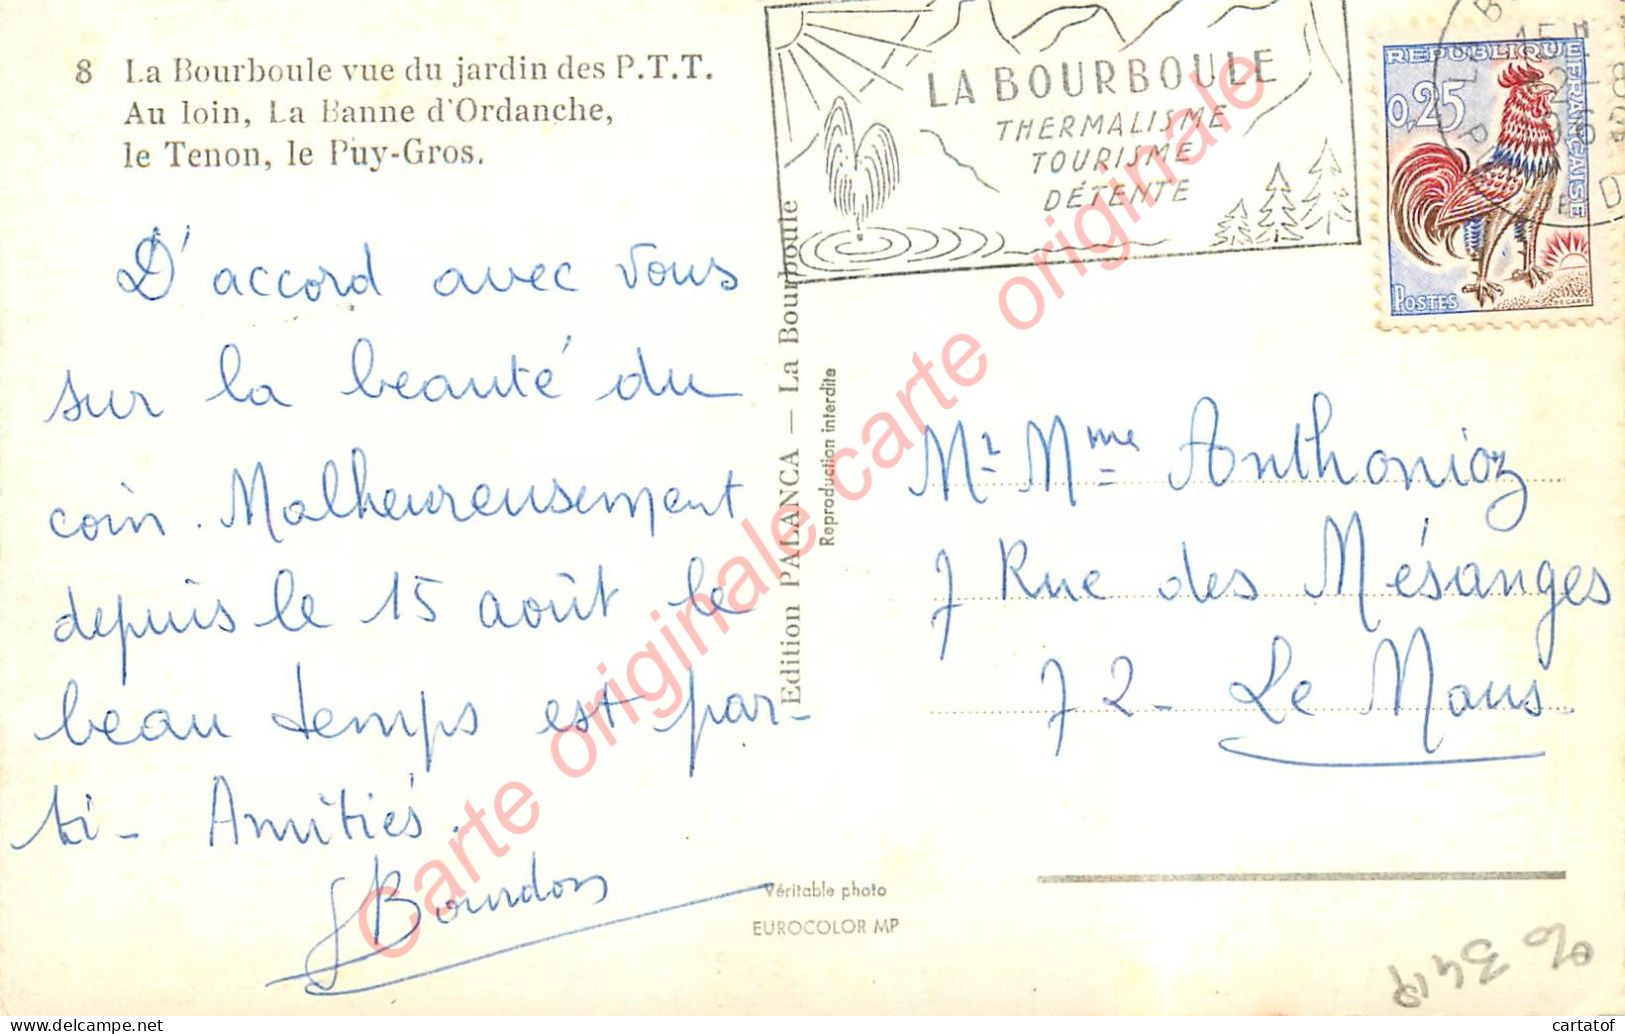 8 La Bourboule vue du jardin des P.T.T.
Au loin, La Banne d'Ordanche,
le Tenon, le Puy-Gros.
D'accord avec vous
sur la beauté du
coin. Malheureusement
depuis le 15 août le
beau temps est par-
ti - Amitiés.
Bourdon
Edition PALANCA — La Bourboule
Reproduction interdite
Véritable photo
EUROCOLOR MP
LA BOURBOULE
THERMALISME
TOURISME
DÉTENTE
REPUBLIQUE FRANCAISE
0,25
POSTES
Mr Mme Anthonioz
7 Rue des Mésanges
72 - Le Mans
Carte originale carte originale carte originale
cartatof